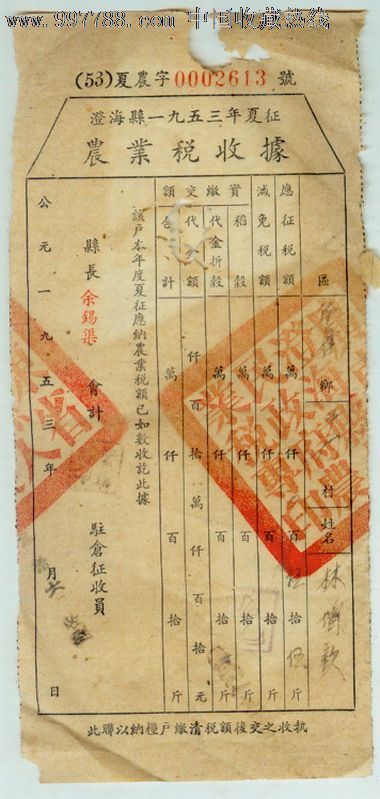 www.997788.com 中国收藏热线
(53)夏農字0002613號
澄海縣一九五三年夏征
農業税收據
區
鄉
村
姓名 林
應征税額 萬仟百伍拾伍斤
減免税額 萬仟百拾斤
實繳 稻穀 萬仟百拾斤
代金折穀 萬仟百拾斤
交代 額 仟百拾萬仟百拾元
額 合計 萬仟百拾斤
該戶本年度夏征應納農業税額已如數收訖此據
縣長 余錫渠 會計 駐倉征收員
公元一九五三年 月 日
此聯以納糧戶繳清税額後交之收執